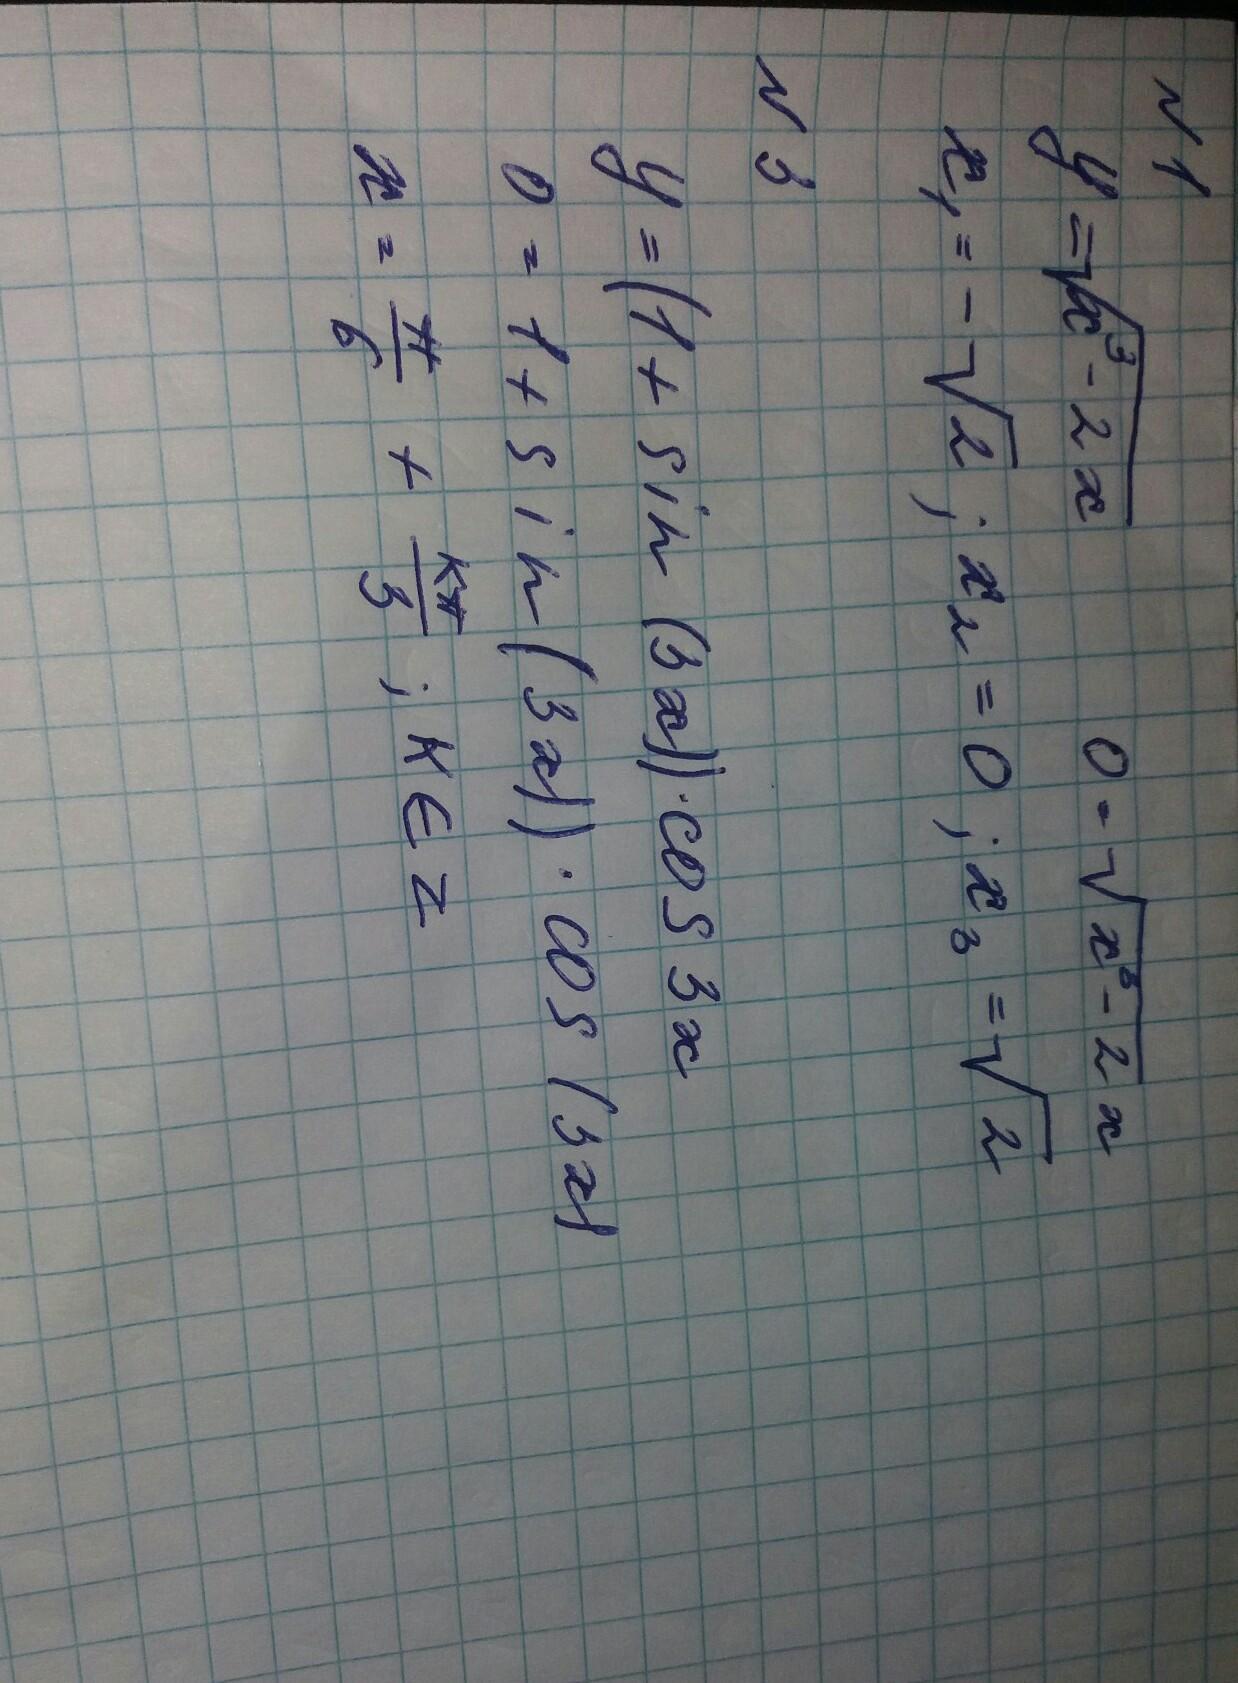 N 1
y = √x³ - 2x 0 = √x³ - 2x
x₁ = - √2 ; x₂ = 0 ; x₃ = √2
N 3
y = (1 + sin (3x)) · cos 3x
0 = 1 + sin (3x)) · cos (3x)
x = π/6 + kπ/3 ; k ∈ Z